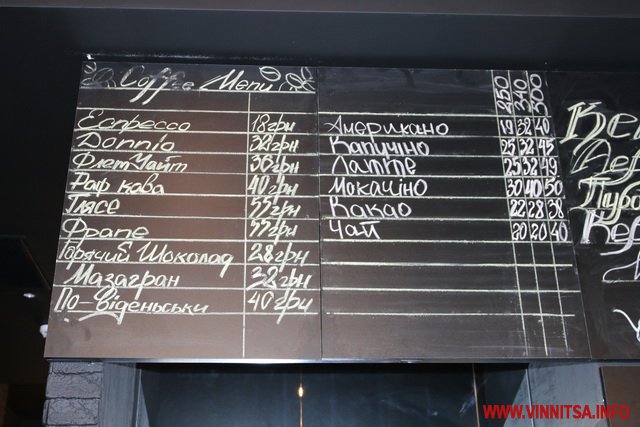 Coffee Menu
Еспрессо 18грн
Доппіо 32грн
ФлетУайт 36грн
Раф кава 40грн
Глясе 55грн
Фрапе 55грн
Гарячий Шоколад 28грн
Мазагран 38грн
По-віденьськи 40грн
250 340 500
Американо 19 32 40
Капучіно 25 32 45
Латте 25 32 49
Мокачіно 30 40 50
Какао 22 28 38
Чай 20 20 40
WWW.VINNITSA.INFO